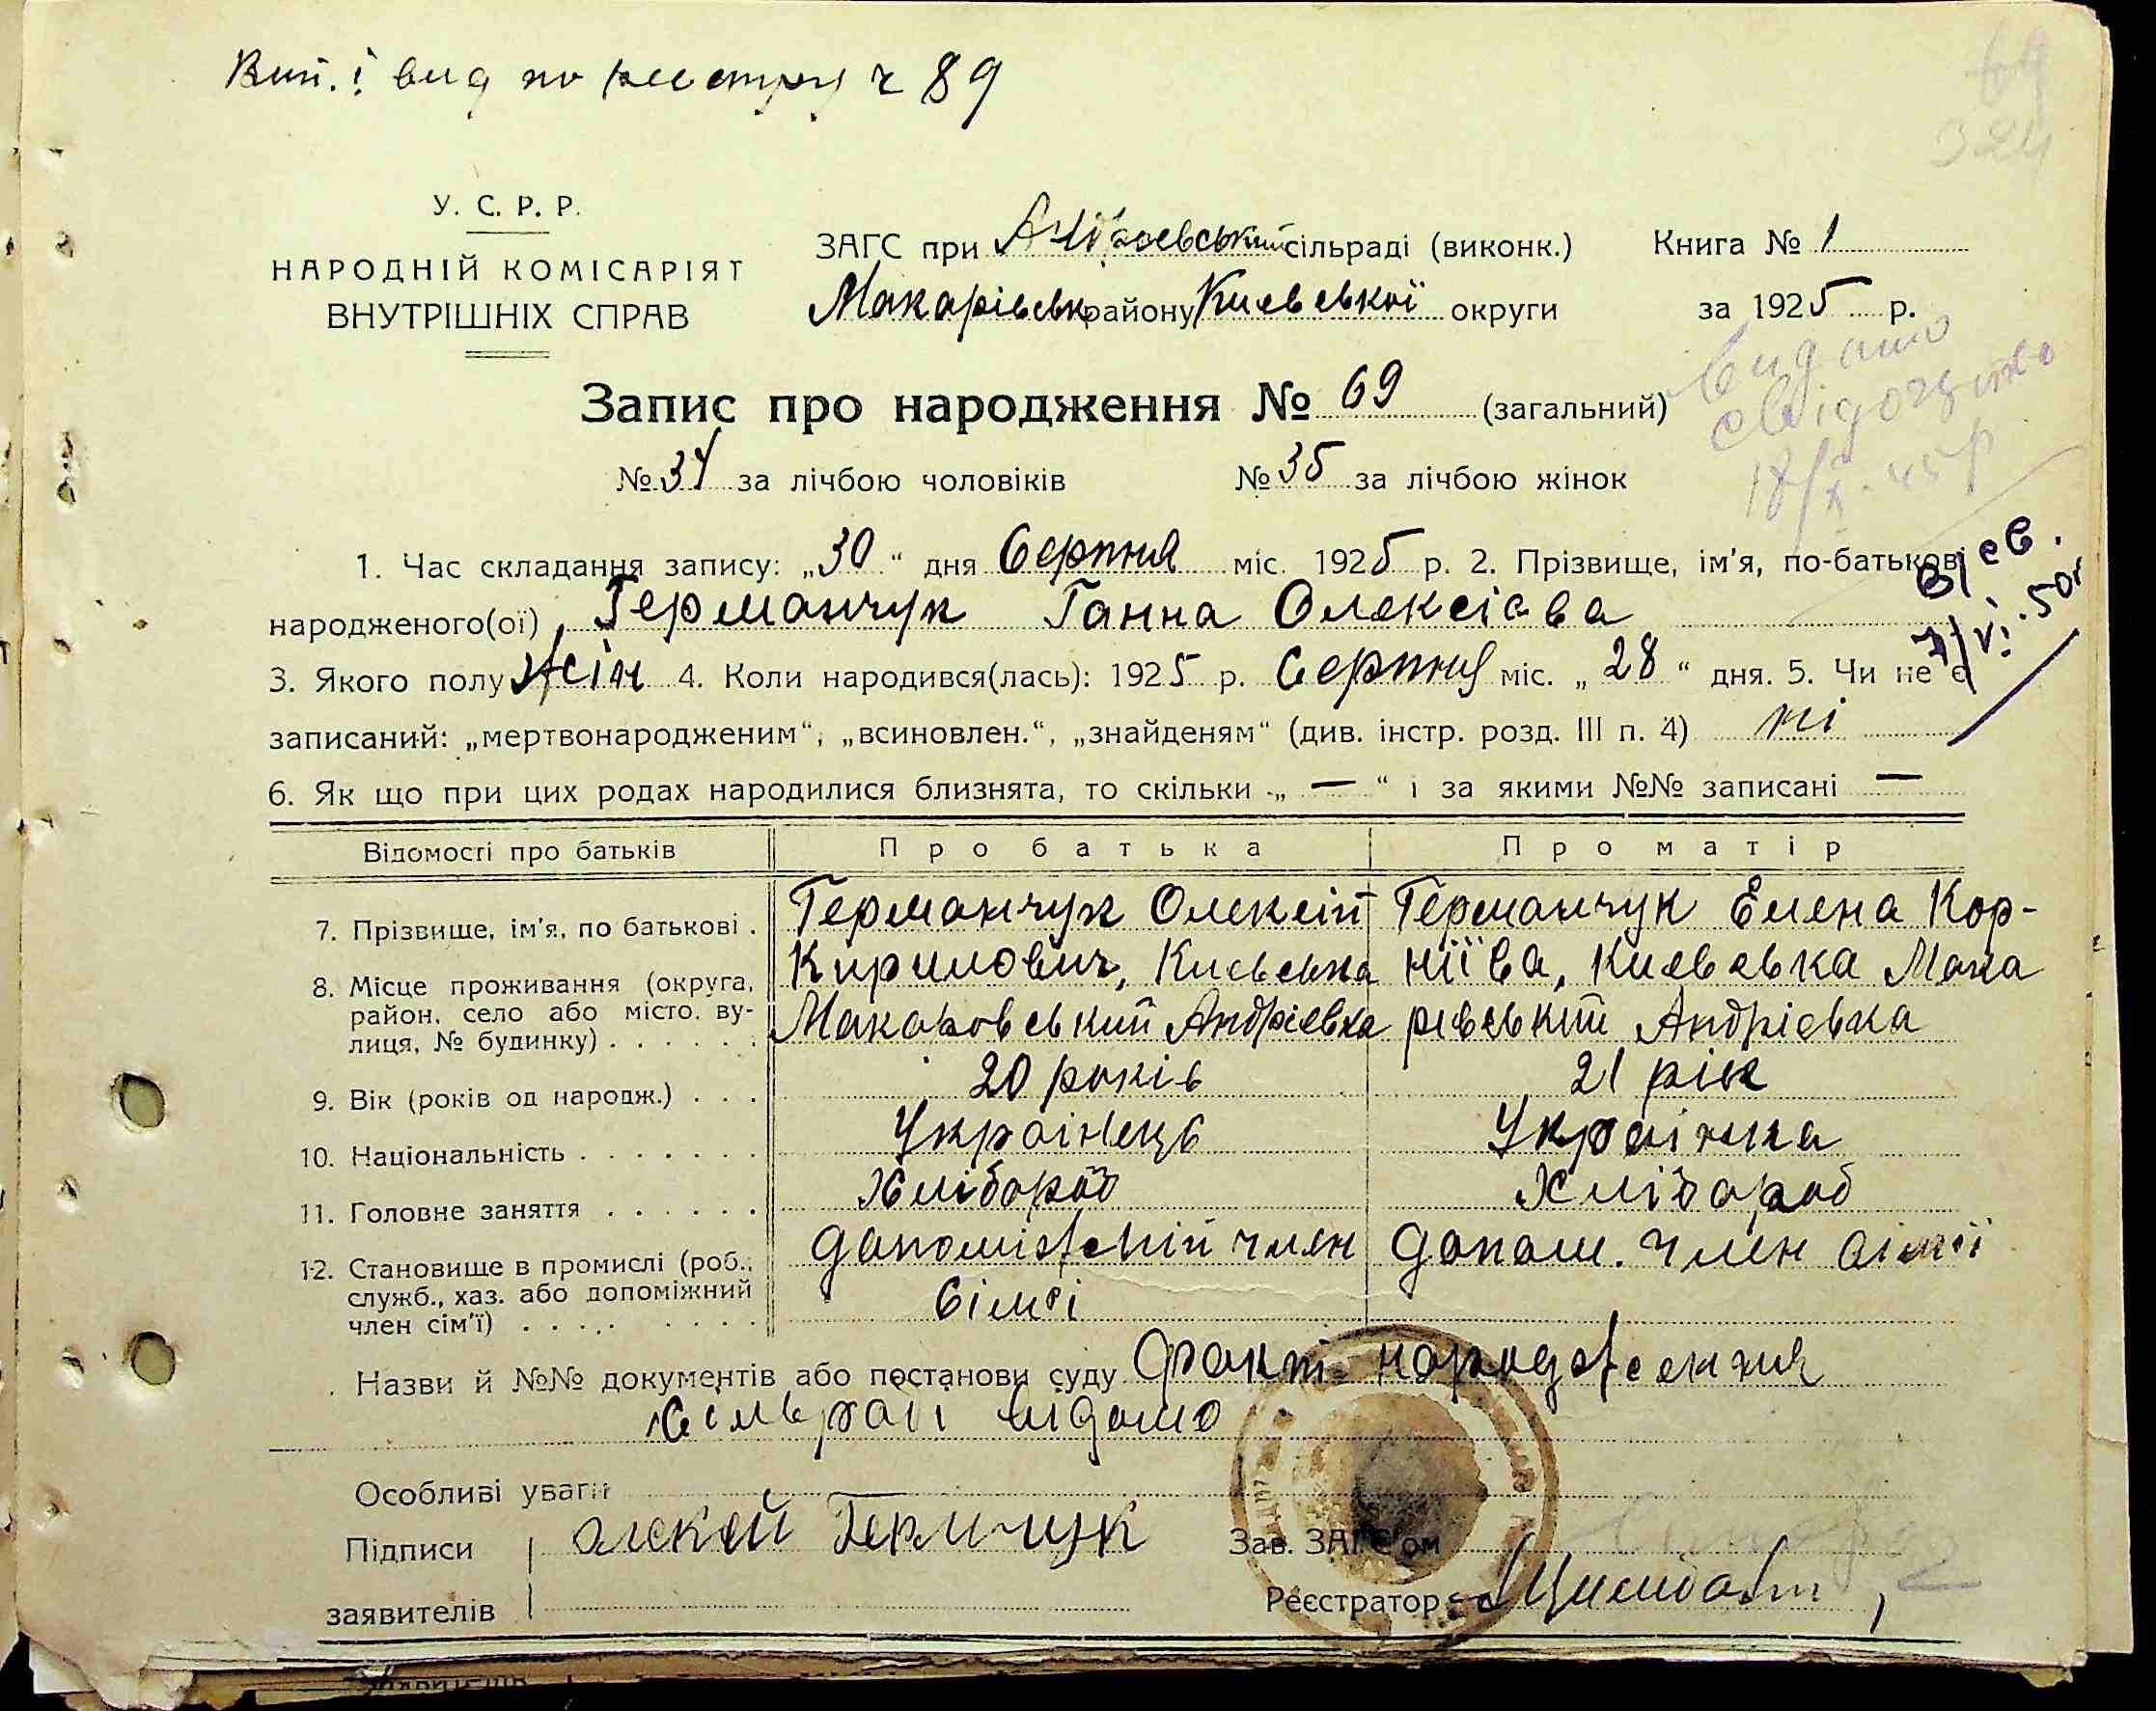 Вип. і вид по реестру ч 89
69
324
У. С. Р. Р.
НАРОДНІЙ КОМІСАРІЯТ
ВНУТРІШНІХ СПРАВ
ЗАГС при Андріевський сільраді (виконк.)
Макарівськ району Киевської округи
Книга № 1
за 1925 р.
Видано
свідоцтво
18/X 45 р
Запис про народження № 69 (загальний)
№ 34 за лічбою чоловіків № 35 за лічбою жінок
1. Час складання запису: „30“ дня Серпня міс. 1925 р. 2. Прізвище, ім'я, по-батькові
народженого(ої) Германчук Ганна Олексієва
3. Якого полу жін 4. Коли народився(лась): 1925 р. Серпня міс. „28“ дня. 5. Чи не є
записаний: „мертвонародженим“, „всиновлен.“, „знайденям“ (див. інстр. розд. III п. 4) ні
6. Як що при цих родах народилися близнята, то скільки „—“ і за якими №№ записані —
В/св.
7/VI. 50г
Відомості про батьків Про батька Про матір
7. Прізвище, ім'я, по батькові . Германчук Олексій Германчук Елена Кор-
8. Місце проживання (округа, Кирилович, Киевська ніїва, Киевська Мака
район, село або місто, ву- Макаровський Андрієвка рівський Андрієвка
лиця, № будинку) . . . . . .
9. Вік (років од народж.) . . . 20 років 21 рік
10. Національність . . . . . . . Українець Українка
11. Головне заняття . . . . . . Хлібороб Хлібороб
12. Становище в промислі (роб., допоміжній член допом. член сімії
служб., хаз. або допоміжний сімьі
член сім'ї) . . . . . . . . .
Назви й №№ документів або постанови суду Факт народження
сільраді відомо
Особливі уваги
Підписи Алексей Гермчук Зав. ЗАГС'ом
заявителів Реєстратор